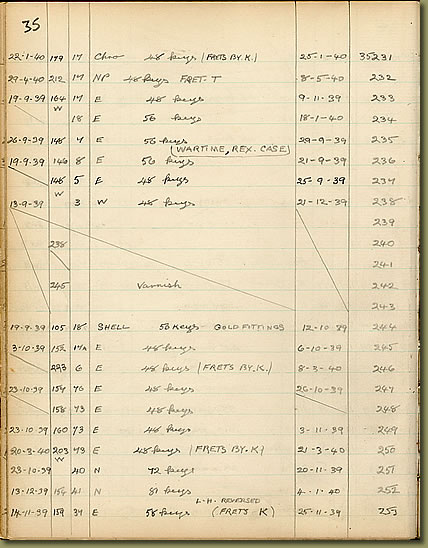 35
22-1-40 179 17 Chro 48 keys (FRETS BY.K.) 25-1-40 35231
29-4-40 212 17 NP 48 keys FRET.T 8-5-40 232
19-9-39 164 17 E 48 keys 9-11-39 233
W 18 E 56 keys 18-1-40 234
26-9-39 148 4 E 56 keys 29-9-39 235
(WARTIME, REX. CASE)
19-9-39 146 8 E 56 keys 21-9-39 236
148 5 E 48 keys 25-9-39 237
W
13-9-39 3 W 48 keys 21-12-39 238
239
238 240
241
245 Varnish 242
243
19-9-39 105 18 SHELL 56 keys GOLD FITTINGS 12-10-39 244
3-10-39 152 E 48 keys 6-10-39 245
293 6 E 48 keys (FRETS BY.K.) 8-3-40 246
23-10-39 154 76 E 48 keys 26-10-39 247
158 73 E 48 keys 248
23-10-39 160 73 E 48 keys 3-11-39 249
20-3-40 203 73 E 48 keys (FRETS BY.K) 21-3-40 250
W
23-10-39 40 N 72 keys 20-11-39 251
13-12-39 154 41 N 81 keys 4-1-40 252
L.H. REVERSED
14-11-39 159 34 E 58 keys (FRETS K) 25-11-39 253